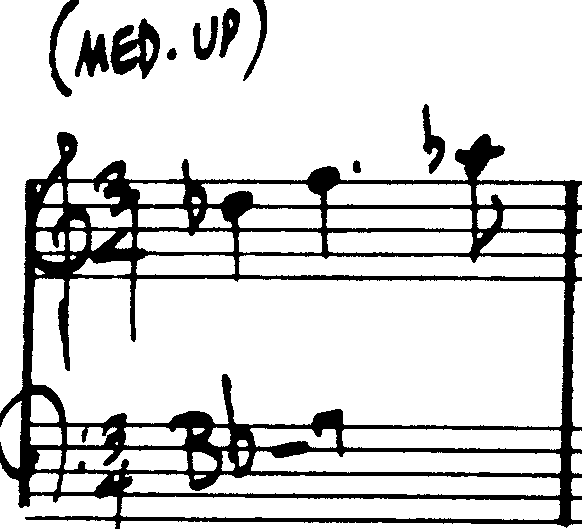 (MED. UP)
3
4
3
4
Bb-7